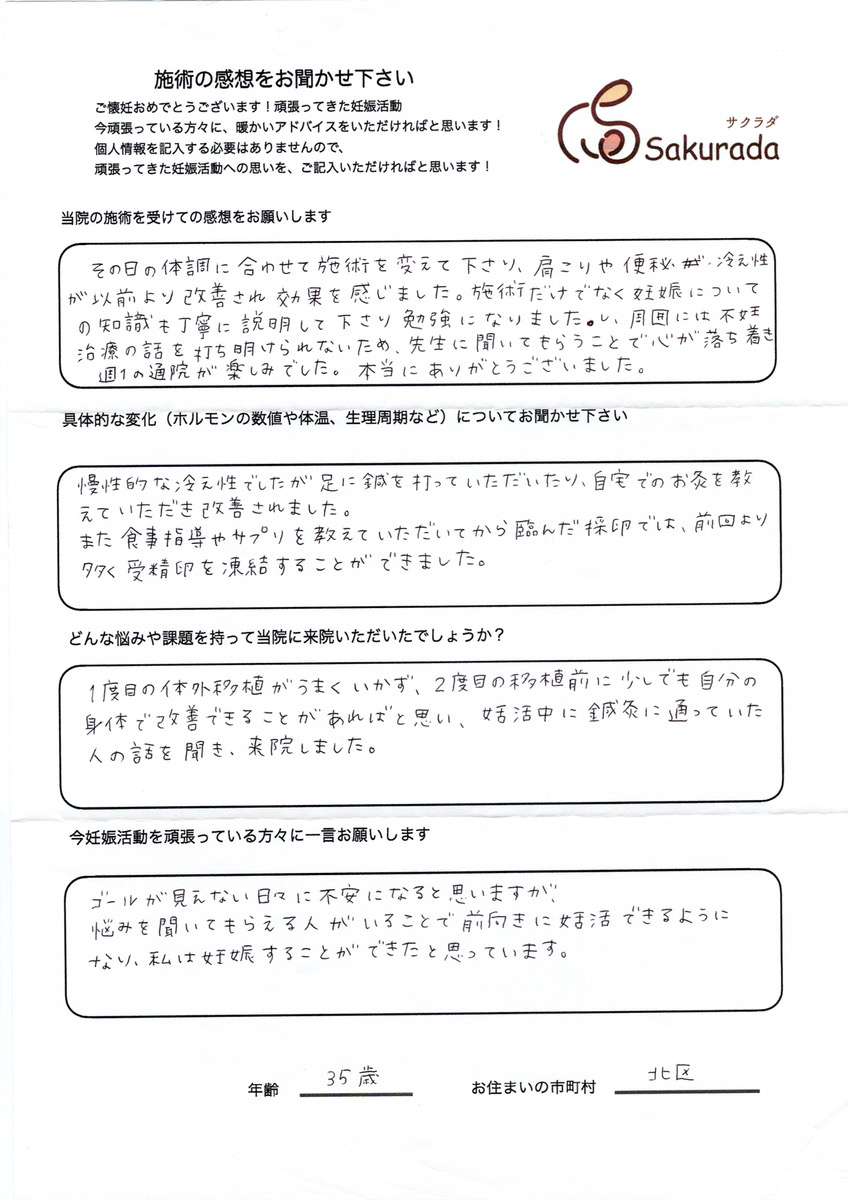 施術の感想をお聞かせ下さい
ご懐妊おめでとうございます！頑張ってきた妊娠活動
今頑張っている方々に、暖かいアドバイスをいただければと思います！
個人情報を記入する必要はありませんので、
頑張ってきた妊娠活動への思いを、ご記入いただければと思います！
サクラダ
Sakurada
当院の施術を受けての感想をお願いします
その日の体調に合わせて施術を変えて下さり、肩こりや便秘、冷え性
が以前より改善され効果を感じました。施術だけでなく妊娠について
の知識も丁寧に説明して下さり勉強になりました。周囲には不妊
治療の話を打ち明けられないため、先生に聞いてもらうことで心が落ち着き
週1の通院が楽しみでした。本当にありがとうございました。
具体的な変化（ホルモンの数値や体温、生理周期など）についてお聞かせ下さい
慢性的な冷え性でしたが足に鍼を打っていただいたり、自宅でのお灸を教
えていただき改善されました。
また食事指導やサプリを教えていただいてから臨んだ採卵では、前回より
多く受精卵を凍結することができました。
どんな悩みや課題を持って当院に来院いただいたでしょうか？
1度目の体外移植がうまくいかず、2度目の移植前に少しでも自分の
身体で改善できることがあればと思い、妊活中に鍼灸に通っていた
人の話を聞き、来院しました。
今妊娠活動を頑張っている方々に一言お願いします
ゴールが見えない日々に不安になると思いますが、
悩みを聞いてもらえる人がいることで前向きに妊活できるように
なり、私は妊娠することができたと思っています。
年齢 35歳 お住まいの市町村 北区